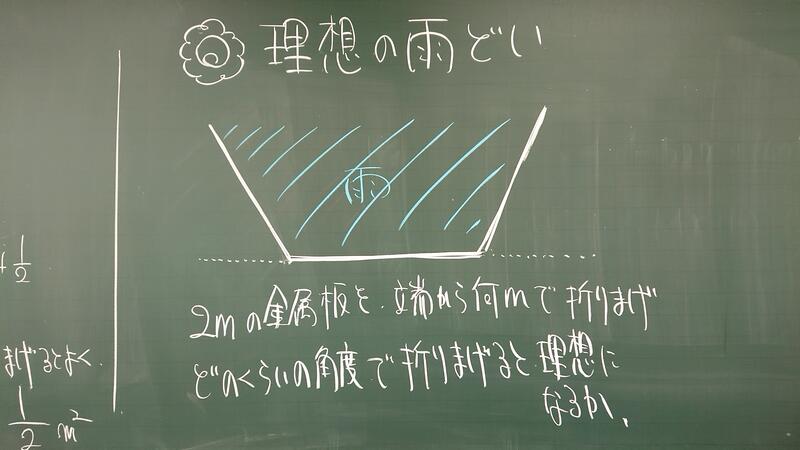 理想の雨どい
雨
2mの金属板を、端から何mで折りまげ
どのくらいの角度で折りまげると理想に
なるか、
+ 1/2
まげるとよく
1/2 m²